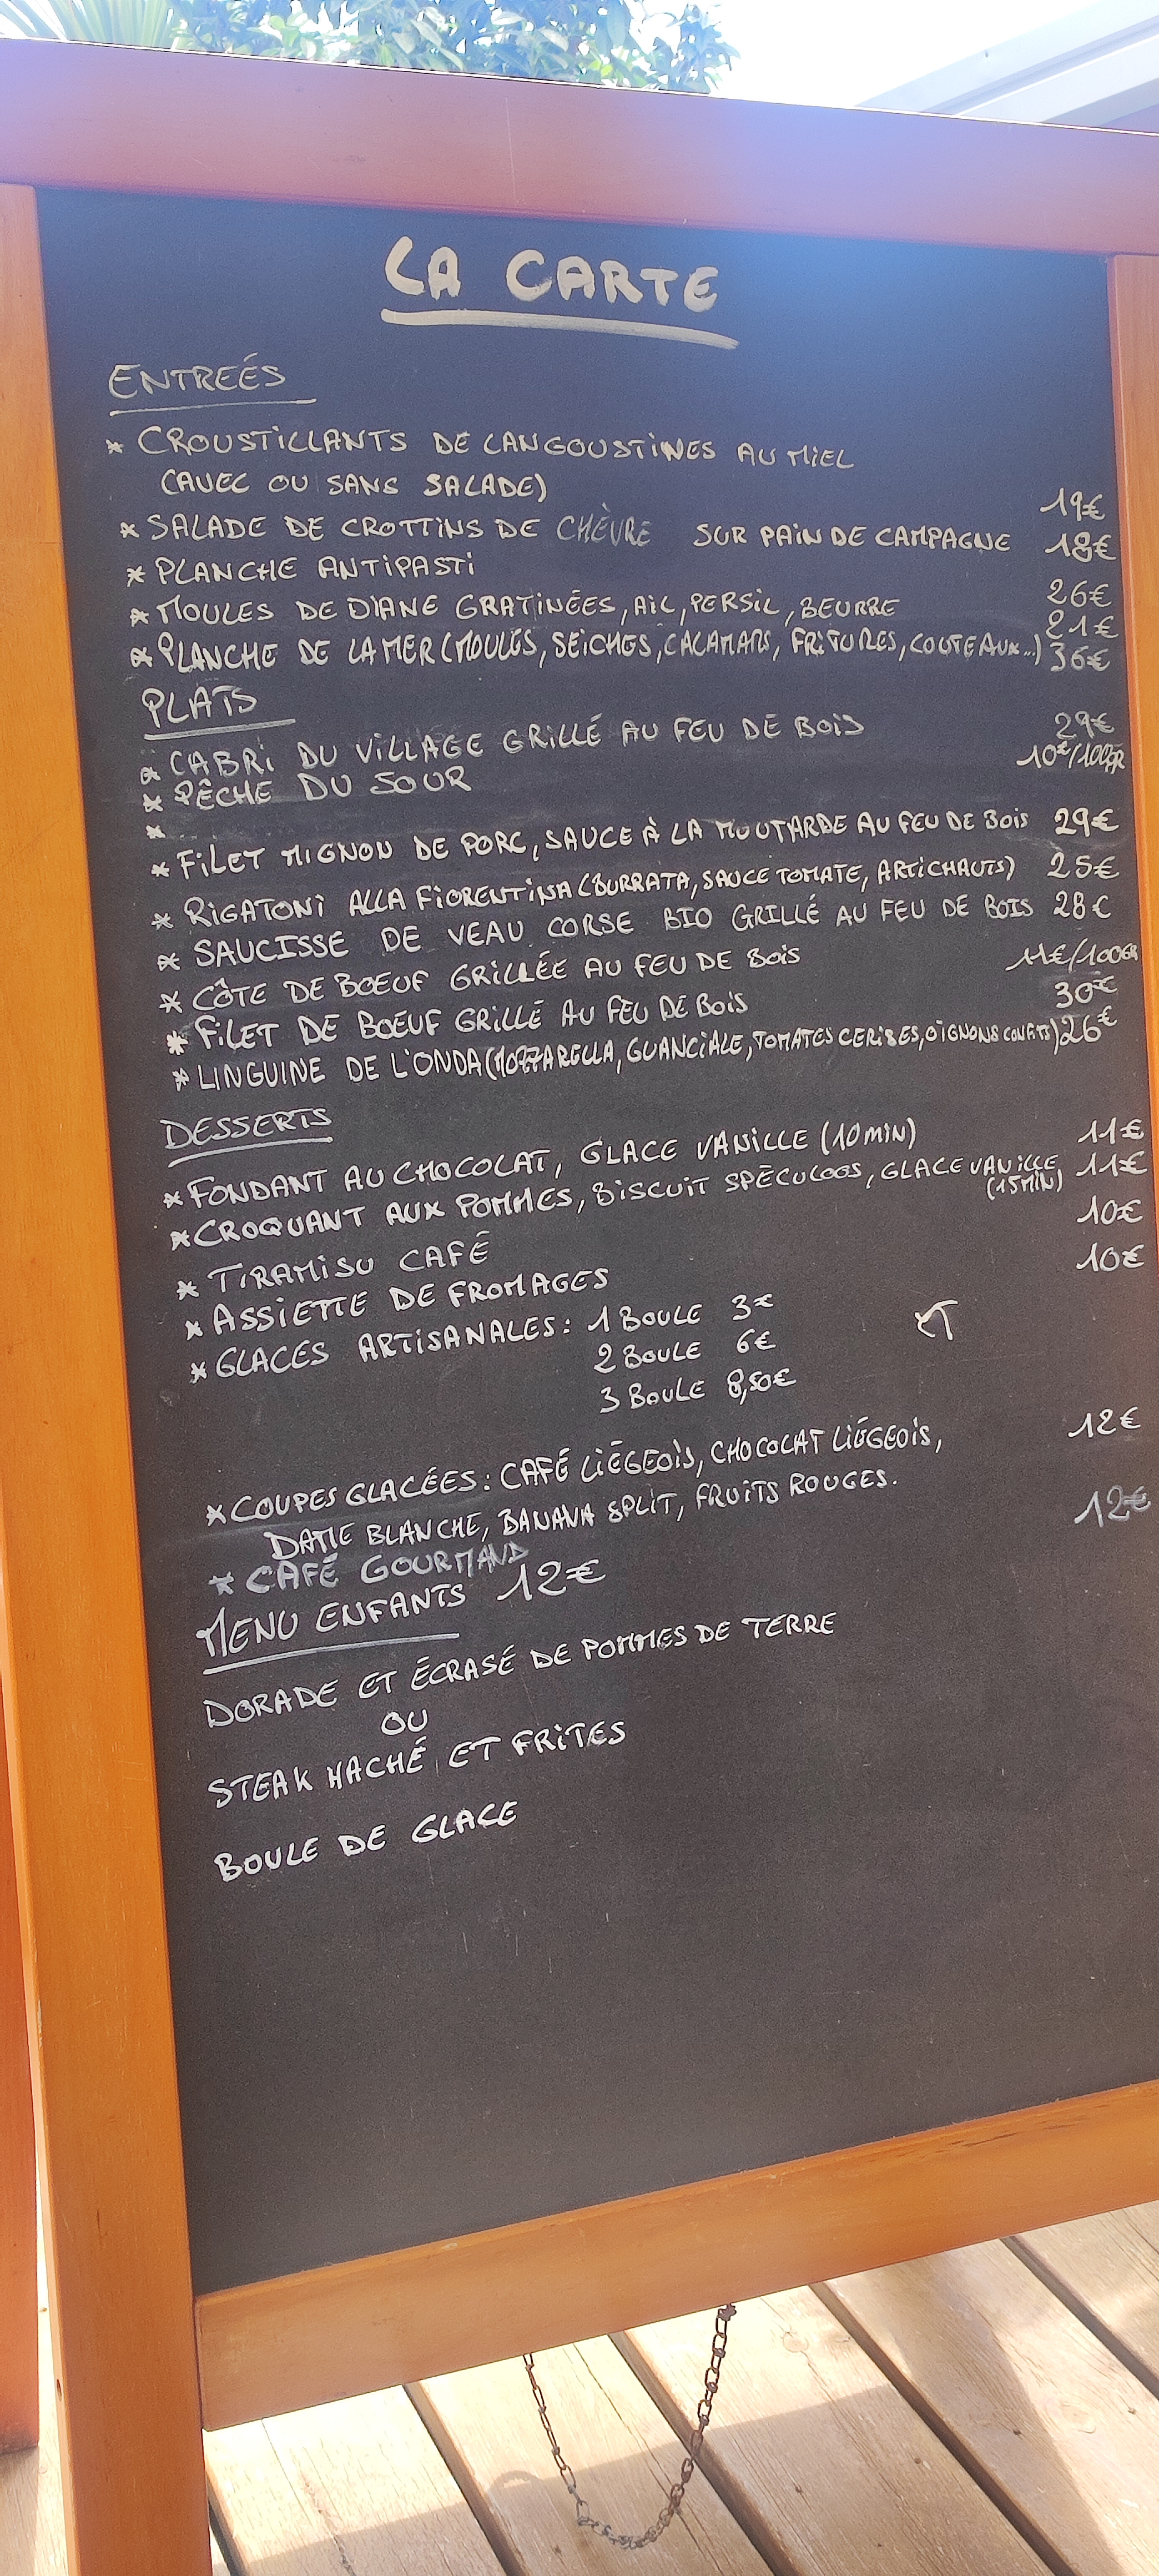 LA CARTE
ENTREÉS
* CROUSTILLANTS DE LANGOUSTINES AU MIEL
(AVEC OU SANS SALADE) 19€
* SALADE DE CROTTINS DE CHÈVRE SUR PAIN DE CAMPAGNE 18€
* PLANCHE ANTIPASTI 26€
* MOULES DE DIANE GRATINÉES, AIL, PERSIL, BEURRE 21€
* PLANCHE DE LA MER (MOULES, SEICHES, CALAMARS, FRITURES, COUTEAUX...) 36€
PLATS
* CABRI DU VILLAGE GRILLÉ AU FEU DE BOIS 29€
* PÊCHE DU JOUR 10€/100GR
*
* FILET MIGNON DE PORC, SAUCE À LA MOUTARDE AU FEU DE BOIS 29€
* RIGATONI ALLA FIORENTINA (BURRATA, SAUCE TOMATE, ARTICHAUTS) 25€
* SAUCISSE DE VEAU CORSE BIO GRILLÉ AU FEU DE BOIS 28€
* CÔTE DE BOEUF GRILLÉE AU FEU DE BOIS 11€/100GR
* FILET DE BOEUF GRILLÉ AU FEU DE BOIS 30€
* LINGUINE DE L'ONDA (MOZZARELLA, GUANCIALE, TOMATES CERISES, OIGNONS CONFITS) 26€
DESSERTS
* FONDANT AU CHOCOLAT, GLACE VANILLE (10MIN) 11€
* CROQUANT AUX POMMES, BISCUIT SPÉCULOOS, GLACE VANILLE 11€
(15MIN)
* TIRAMISU CAFÉ 10€
* ASSIETTE DE FROMAGES 10€
* GLACES ARTISANALES: 1 BOULE 3€
2 BOULE 6€
3 BOULE 8,50€
* COUPES GLACÉES: CAFÉ LIÉGEOIS, CHOCOLAT LIÉGEOIS, 12€
DAME BLANCHE, BANANA SPLIT, FRUITS ROUGES.
* CAFÉ GOURMAND 12€
MENU ENFANTS 12€
DORADE ET ÉCRASÉ DE POMMES DE TERRE
OU
STEAK HACHÉ ET FRITES
BOULE DE GLACE